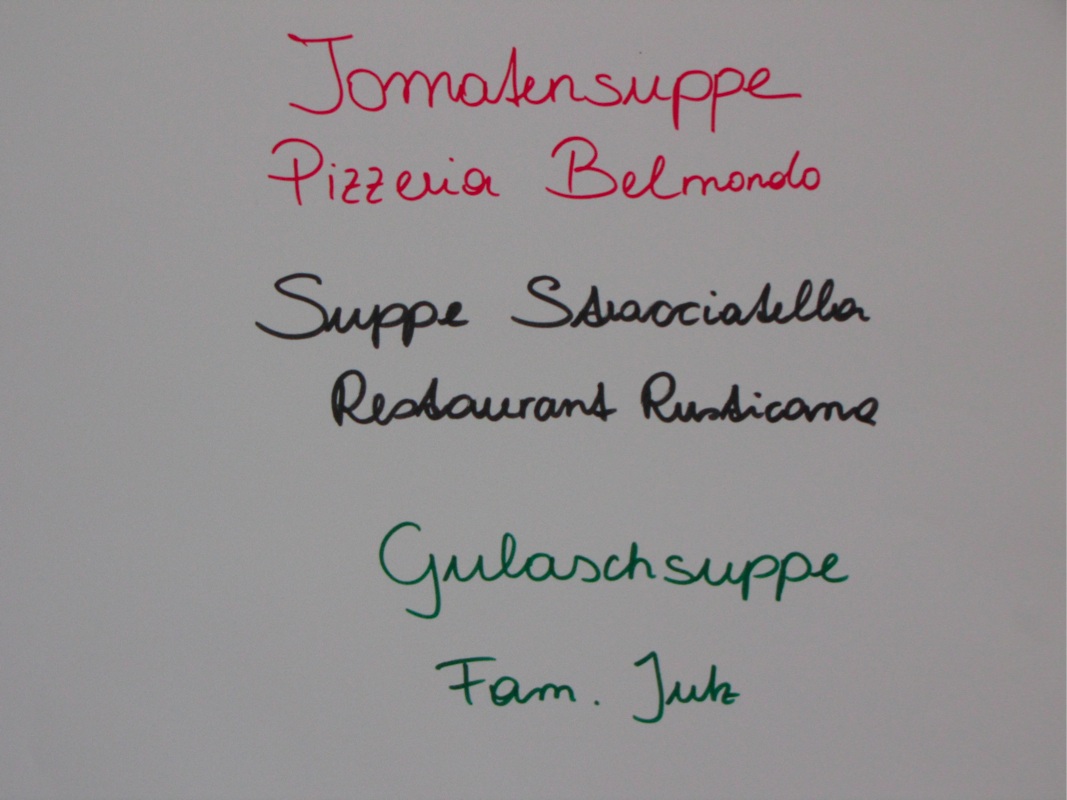 Tomatensuppe
Pizzeria Belmondo
Suppe Stracciatella
Restaurant Rusticana
Gulaschsuppe
Fam. Jutz